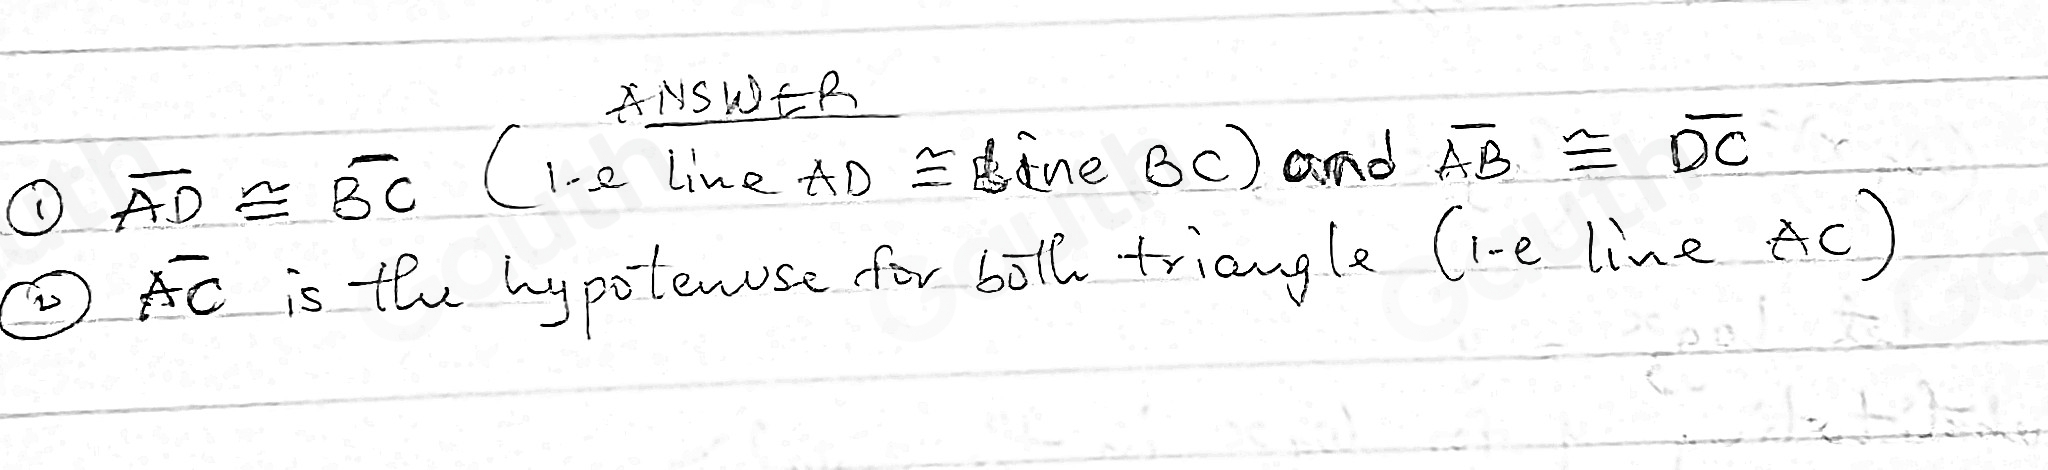 ANSWER
① A̅D̅ ≅ B̅C̅ (i-e line AD ≅ line BC) and A̅B̅ ≅ D̅C̅
② A̅C̅ is the hypotenuse for both triangle (i-e line AC)